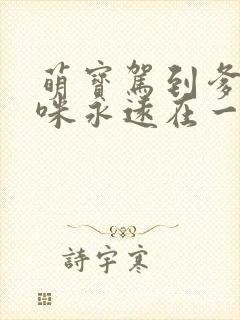 萌寶駕到爹
咪永遠在一
詩宇寒